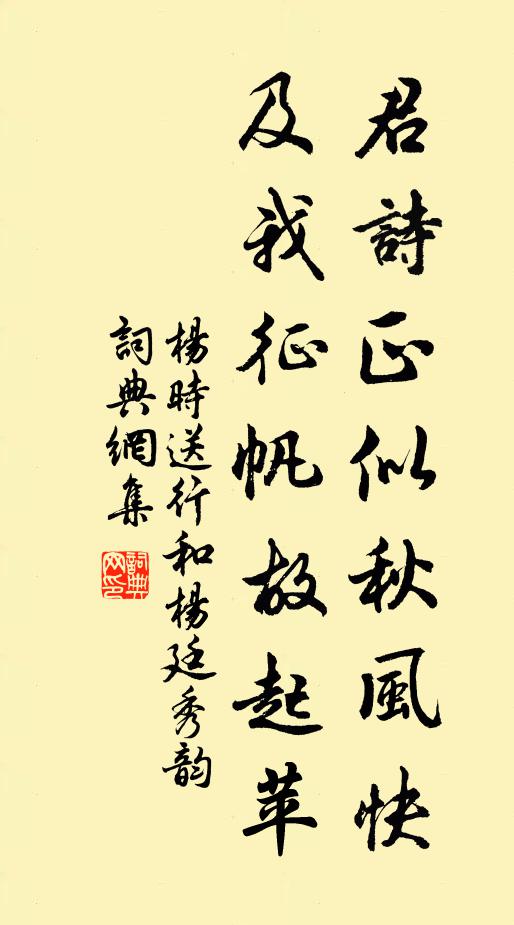 君詩正似秋風快
及我征帆故起苹
楊時送行和楊廷秀韵
詞典網集
詞典網印